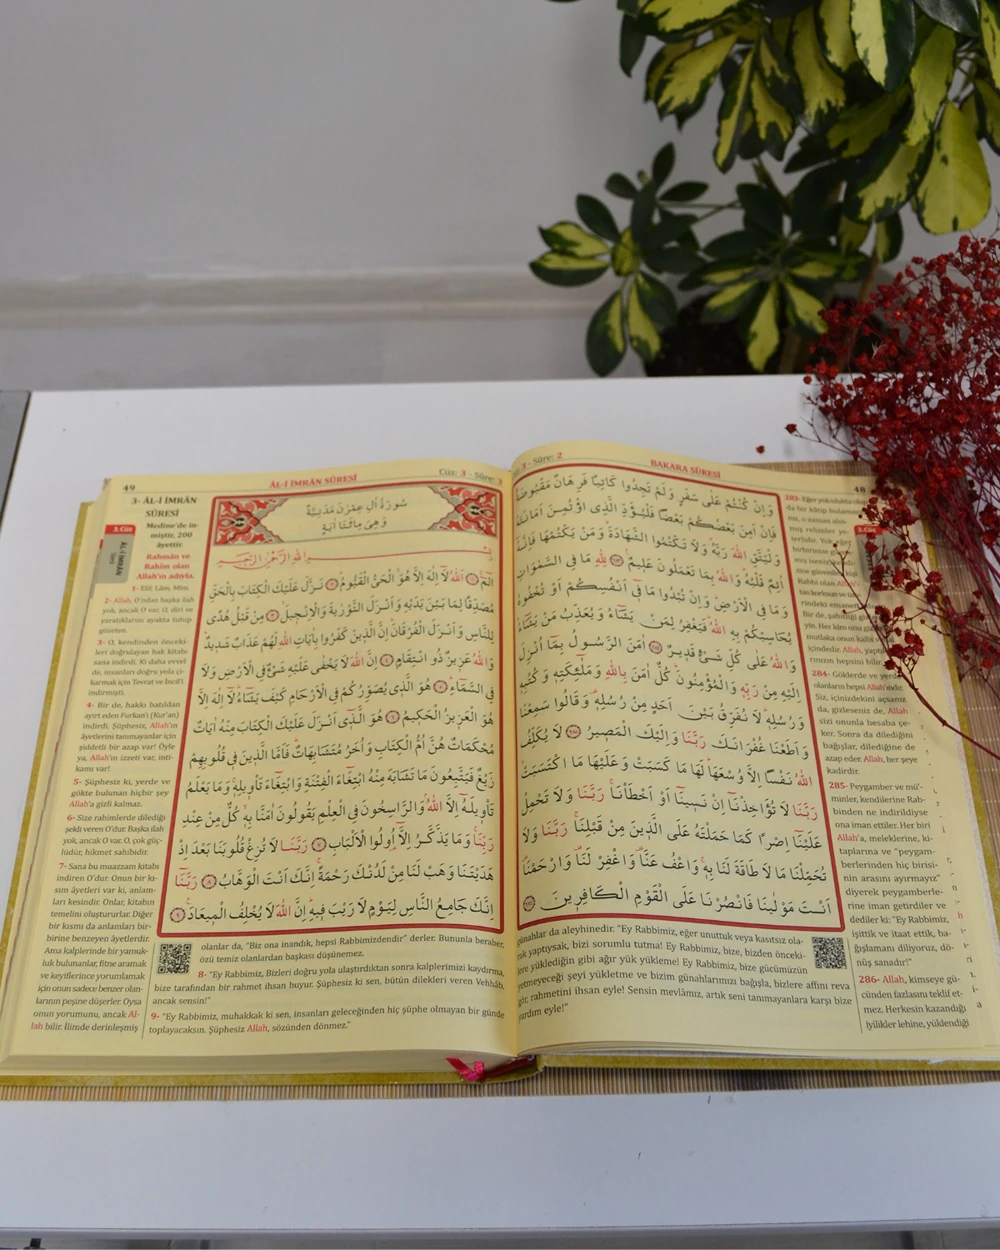 Cüz: 3 - Sûre: 2
BAKARA SÛRESİ
48
وَاِنْ كُنْتُمْ عَلٰى سَفَرٍ وَلَمْ تَجِدُوا كَاتِبًا فَرِهَانٌ مَقْبُوضَةٌ
فَاِنْ اَمِنَ بَعْضُكُمْ بَعْضًا فَلْيُؤَدِّ الَّذِى اؤْتُمِنَ اَمَانَتَهُ
وَلْيَتَّقِ اللّٰهَ رَبَّهُ وَلَا تَكْتُمُوا الشَّهَادَةَ وَمَنْ يَكْتُمْهَا فَاِنَّهُ
اٰثِمٌ قَلْبُهُ وَاللّٰهُ بِمَا تَعْمَلُونَ عَلِيمٌ ﴿٢٨٣﴾ لِلّٰهِ مَا فِى السَّمٰوَاتِ
وَمَا فِى الْاَرْضِ وَاِنْ تُبْدُوا مَا فِى اَنْفُسِكُمْ اَوْ تُخْفُوهُ
يُحَاسِبْكُمْ بِهِ اللّٰهُ فَيَغْفِرُ لِمَنْ يَشَاءُ وَيُعَذِّبُ مَنْ يَشَاءُ
وَاللّٰهُ عَلٰى كُلِّ شَىْءٍ قَدِيرٌ ﴿٢٨٤﴾ اٰمَنَ الرَّسُولُ بِمَا اُنْزِلَ
اِلَيْهِ مِنْ رَبِّهِ وَالْمُؤْمِنُونَ كُلٌّ اٰمَنَ بِاللّٰهِ وَمَلٰئِكَتِهِ وَكُتُبِهِ
وَرُسُلِهِ لَا نُفَرِّقُ بَيْنَ اَحَدٍ مِنْ رُسُلِهِ وَقَالُوا سَمِعْنَا
وَاَطَعْنَا غُفْرَانَكَ رَبَّنَا وَاِلَيْكَ الْمَصِيرُ ﴿٢٨٥﴾ لَا يُكَلِّفُ
اللّٰهُ نَفْسًا اِلَّا وُسْعَهَا لَهَا مَا كَسَبَتْ وَعَلَيْهَا مَا اكْتَسَبَتْ
رَبَّنَا لَا تُؤَاخِذْنَا اِنْ نَسِينَا اَوْ اَخْطَأْنَا رَبَّنَا وَلَا تَحْمِلْ
عَلَيْنَا اِصْرًا كَمَا حَمَلْتَهُ عَلَى الَّذِينَ مِنْ قَبْلِنَا رَبَّنَا وَلَا
تُحَمِّلْنَا مَا لَا طَاقَةَ لَنَا بِهِ وَاعْفُ عَنَّا وَاغْفِرْ لَنَا وَارْحَمْنَا
اَنْتَ مَوْلٰينَا فَانْصُرْنَا عَلَى الْقَوْمِ الْكَافِرِينَ ﴿٢٨٦﴾
283- Eğer yolculukta
da bir kâtip
3. Cüz
284- Göklerde ve yerde
olanların hepsi Allah'ındır.
Siz, içinizdekini açsanız
da, gizleseniz de, Allah
sizi onunla hesaba çe-
ker. Sonra da dilediğini
bağışlar, dilediğine de
azap eder. Allah, her şeye
kadirdir.
285- Peygamber ve mü'-
minler, kendilerine Rab-
binden ne indirildiyse
ona iman ettiler. Her biri
Allah'a, meleklerine, ki-
taplarına ve "peygam-
berlerinden hiç birisi-
nin arasını ayırmayız"
diyerek peygamberle-
rine iman getirdiler ve
dediler ki: "Ey Rabbimiz,
işittik ve itaat ettik, ba-
ğışlamanı diliyoruz, dö-
nüş sanadır!"
286- Allah, kimseye gü-
cünden fazlasını teklif et-
mez. Herkesin kazandığı
iyilikler lehine, yüklendiği
günahlar da aleyhinedir. "Ey Rabbimiz, eğer unuttuk veya kasıtsız ola-
rak yaptıysak, bizi sorumlu tutma! Ey Rabbimiz, bize, bizden önceki-
lere yüklediğin gibi ağır yük yükleme! Ey Rabbimiz, bize gücümüzün
yetmeyeceği şeyi yükletme ve bizim günahlarımızı bağışla, bizlere affını reva
gör, rahmetini ihsan eyle! Sensin mevlâmız, artık seni tanımayanlara karşı bize
yardım eyle!"
49
ÂL-İ İMRÂN SÛRESİ
Cüz: 3 - Sûre: 3
سُورَةُ اٰلِ عِمْرٰنَ مَدَنِيَّةٌ
وَهِىَ مِائَتَا اٰيَةٍ
بِسْمِ اللّٰهِ الرَّحْمٰنِ الرَّحِيمِ
الٓمٓ ﴿١﴾ اَللّٰهُ لَا اِلٰهَ اِلَّا هُوَ الْحَىُّ الْقَيُّومُ ﴿٢﴾ نَزَّلَ عَلَيْكَ الْكِتَابَ بِالْحَقِّ
مُصَدِّقًا لِمَا بَيْنَ يَدَيْهِ وَاَنْزَلَ التَّوْرٰيةَ وَالْاِنْجِيلَ ﴿٣﴾ مِنْ قَبْلُ هُدًى
لِلنَّاسِ وَاَنْزَلَ الْفُرْقَانَ اِنَّ الَّذِينَ كَفَرُوا بِاٰيَاتِ اللّٰهِ لَهُمْ عَذَابٌ شَدِيدٌ
وَاللّٰهُ عَزِيزٌ ذُو انْتِقَامٍ ﴿٤﴾ اِنَّ اللّٰهَ لَا يَخْفٰى عَلَيْهِ شَىْءٌ فِى الْاَرْضِ وَلَا
فِى السَّمَاءِ ﴿٥﴾ هُوَ الَّذِى يُصَوِّرُكُمْ فِى الْاَرْحَامِ كَيْفَ يَشَاءُ لَا اِلٰهَ اِلَّا
هُوَ الْعَزِيزُ الْحَكِيمُ ﴿٦﴾ هُوَ الَّذِى اَنْزَلَ عَلَيْكَ الْكِتَابَ مِنْهُ اٰيَاتٌ
مُحْكَمَاتٌ هُنَّ اُمُّ الْكِتَابِ وَاُخَرُ مُتَشَابِهَاتٌ فَاَمَّا الَّذِينَ فِى قُلُوبِهِمْ
زَيْغٌ فَيَتَّبِعُونَ مَا تَشَابَهَ مِنْهُ ابْتِغَاءَ الْفِتْنَةِ وَابْتِغَاءَ تَأْوِيلِهِ وَمَا يَعْلَمُ
تَأْوِيلَهُ اِلَّا اللّٰهُ وَالرَّاسِخُونَ فِى الْعِلْمِ يَقُولُونَ اٰمَنَّا بِهِ كُلٌّ مِنْ عِنْدِ
رَبِّنَا وَمَا يَذَّكَّرُ اِلَّا اُولُوا الْاَلْبَابِ ﴿٧﴾ رَبَّنَا لَا تُزِغْ قُلُوبَنَا بَعْدَ اِذْ
هَدَيْتَنَا وَهَبْ لَنَا مِنْ لَدُنْكَ رَحْمَةً اِنَّكَ اَنْتَ الْوَهَّابُ ﴿٨﴾ رَبَّنَا
اِنَّكَ جَامِعُ النَّاسِ لِيَوْمٍ لَا رَيْبَ فِيهِ اِنَّ اللّٰهَ لَا يُخْلِفُ الْمِيعَادَ ﴿٩﴾
3- ÂL-İ İMRÂN
SÛRESİ
Medine'de in-
miştir, 200
âyettir.
Rahmân ve
Rahîm olan
Allah'ın adıyla.
3. Cüz
ÂL-İ İMRÂN
1- Elif, Lâm, Mîm.
2- Allah, O'ndan başka ilah
yok, ancak O var. O, diri ve
yaratıklarını ayakta tutup
gözeten.
3- O, kendinden önceki-
leri doğrulayan hak kitabı
sana indirdi. Ki daha evvel
de, insanları doğru yola çı-
karmak için Tevrat ve İncil'i
indirmişti.
4- Bir de, hakkı batıldan
ayırt eden Furkan'ı (Kur'an)
indirdi. Şüphesiz, Allah'ın
âyetlerini tanımayanlar için
şiddetli bir azap var! Öyle
ya, Allah'ın izzeti var, inti-
kamı var!
5- Şüphesiz ki, yerde ve
gökte bulunan hiçbir şey
Allah'a gizli kalmaz.
6- Size rahimlerde dilediği
şekli veren O'dur. Başka ilah
yok, ancak O var. O, çok güç-
lüdür, hikmet sahibidir.
7- Sana bu muazzam kitabı
indiren O'dur. Onun bir kı-
sım âyetleri var ki, anlam-
ları kesindir. Onlar, kitabın
temelini oluştururlar. Diğer
bir kısmı da anlamları bir-
birine benzeyen âyetlerdir.
Ama kalplerinde bir yamuk-
luk bulunanlar, fitne aramak
ve keyiflerince yorumlamak
için onun sadece benzer olan-
larının peşine düşerler. Oysa
onun yorumunu, ancak Al-
lah bilir. İlimde derinleşmiş
olanlar da, "Biz ona inandık, hepsi Rabbimizdendir" derler. Bununla beraber,
özü temiz olanlardan başkası düşünemez.
8- "Ey Rabbimiz, Bizleri doğru yola ulaştırdıktan sonra kalplerimizi kaydırma,
bize tarafından bir rahmet ihsan buyur. Şüphesiz ki sen, bütün dilekleri veren Vehhâb,
ancak sensin!"
9- "Ey Rabbimiz, muhakkak ki sen, insanları geleceğinden hiç şüphe olmayan bir günde
toplayacaksın. Şüphesiz Allah, sözünden dönmez."